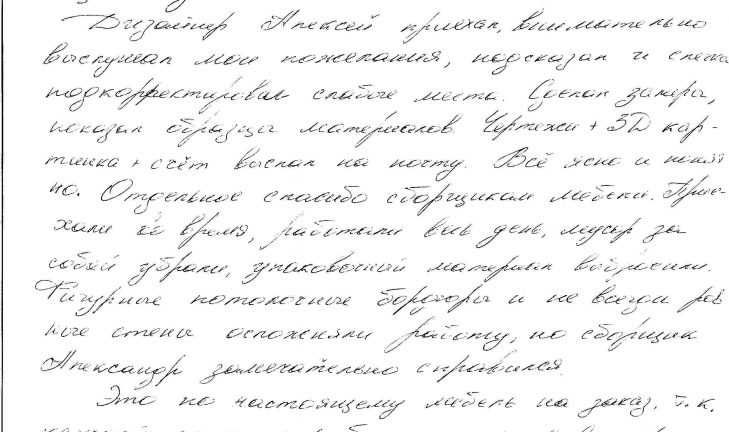 Дизайнер Алексей приехал, внимательно
выслушал мои пожелания, подсказал и слегка
подкорректировал слабые места. Сделал замеры,
показал образцы материалов. Чертежи + 3D кар-
тинка + счёт выслал на почту. Всё ясно и понят
но. Отдельное спасибо сборщикам мебели. Прие-
хали во время, работали весь день, мусор за
собой убрали, упаковочный материал выбросили.
Фигурные потолочные бордюры и не всегда ров
ные стены осложняли работу, но сборщик
Александр замечательно справился.
Это по настоящему мебель на заказ, т.к.